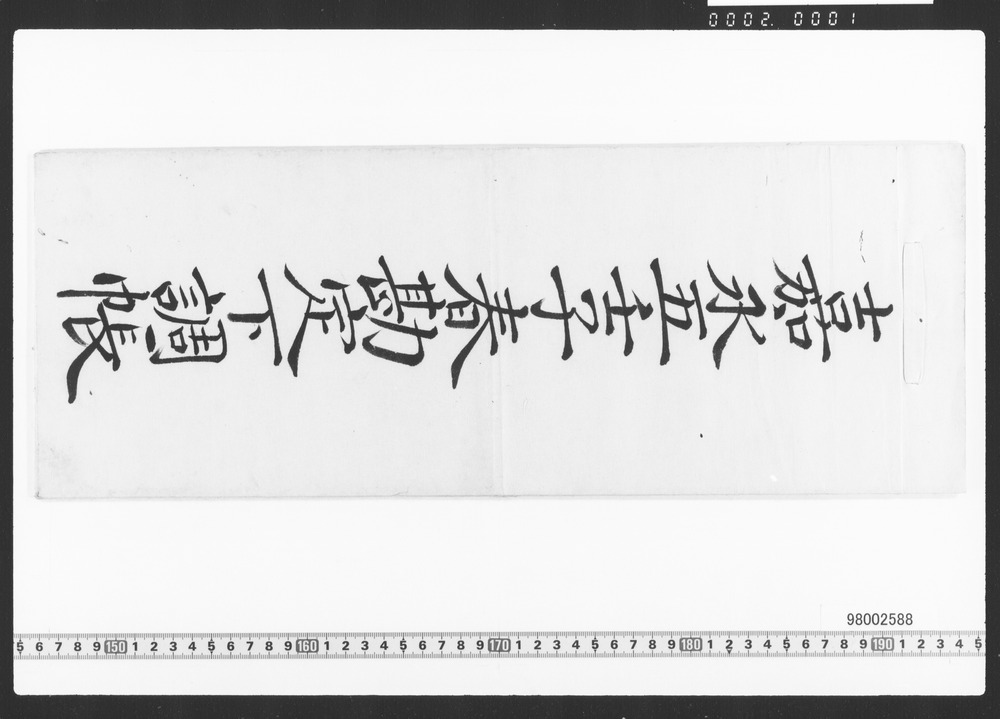 0002.0001
嘉永五壬子春勘定下調帳
98002588
5 6 7 8 9 150 1 2 3 4 5 6 7 8 9 160 1 2 3 4 5 6 7 8 9 170 1 2 3 4 5 6 7 8 9 180 1 2 3 4 5 6 7 8 9 190 1 2 3 4 5